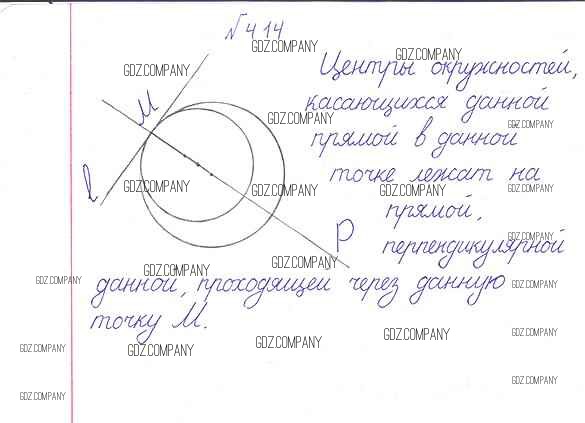 №414
GDZ.COMPANY
GDZ.COMPANY
GDZ.COMPANY
Центры окружностей,
M
касающихся данной
GDZ.COMPANY
GDZ.COMPANY
прямой в данной
точке лежат на
l
GDZ.COMPANY
GDZ.COMPANY
GDZ.COMPANY
GDZ.COMPANY
прямой,
P
GDZ.COMPANY
перпендикулярной
GDZ.COMPANY
GDZ.COMPANY
GDZ.COMPANY
данной, проходящей через данную
GDZ.COMPANY
точку M.
GDZ.COMPANY
GDZ.COMPANY
GDZ.COMPANY
GDZ.COMPANY
GDZ.COMPANY
GDZ.COMPANY
GDZ.COMPANY